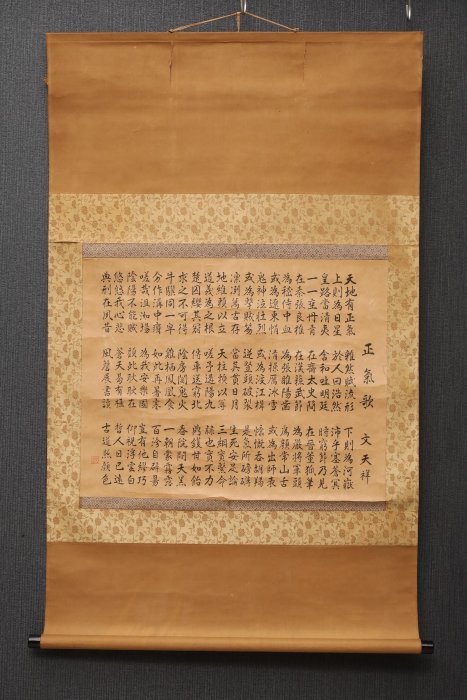 正氣歌 文天祥
天地有正氣 雜然賦流形 下則為河嶽
上則為日星 於人曰浩然 沛乎塞蒼冥
皇路當清夷 含和吐明庭 時窮節乃見
一一垂丹青 在齊太史簡 在晉董狐筆
在秦張良椎 在漢蘇武節 為嚴將軍頭
為嵇侍中血 為張睢陽齒 為顏常山舌
或為遼東帽 清操厲冰雪 或為出師表
鬼神泣壯烈 或為渡江楫 慷慨吞胡羯
或為擊賊笏 逆豎頭破裂 是氣所磅礴
凜冽萬古存 當其貫日月 生死安足論
地維賴以立 天柱賴以尊 三綱實繫命
道義為之根 嗟予遘陽九 隸也實不力
楚囚纓其冠 傳車送窮北 鼎鑊甘如飴
求之不可得 陰房闃鬼火 春院閟天黑
牛驥同一皁 雞棲鳳凰食 一朝蒙霧露
分作溝中瘠 如此再寒暑 百沴自辟易
嗟哉沮洳場 為我安樂國 豈有他繆巧
陰陽不能賊 顧此耿耿在 仰視浮雲白
悠悠我心悲 蒼天曷有極 哲人日已遠
典刑在夙昔 風簷展書讀 古道照顏色